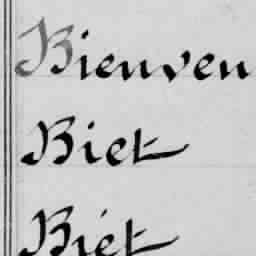 Bienven
Biet
Biét